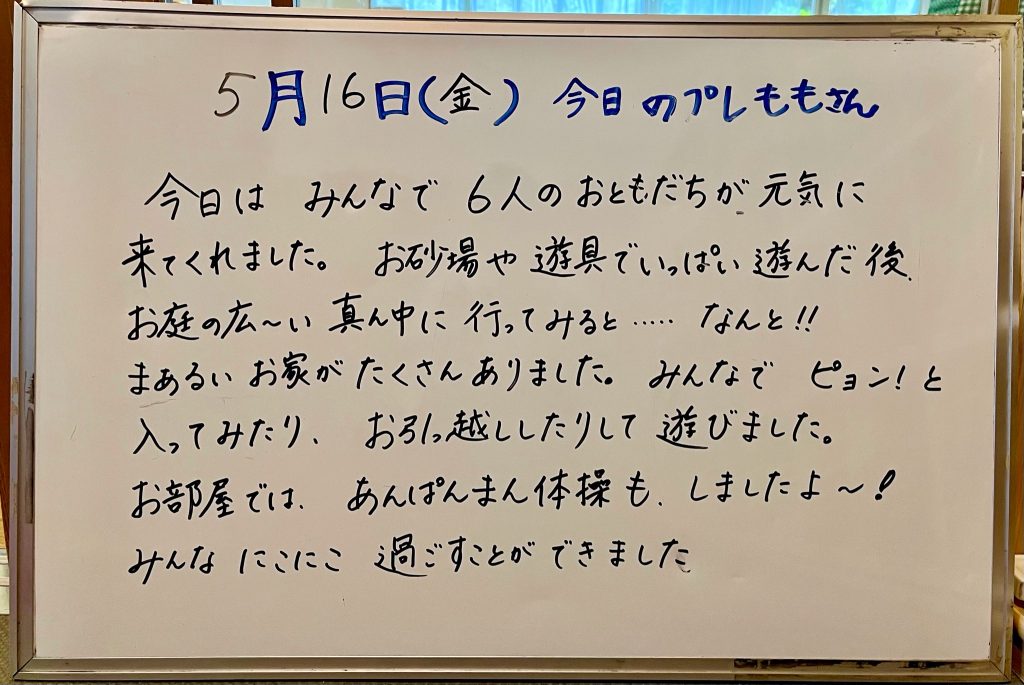 5月16日(金) 今日のプレももさん
今日は みんなで 6人の おともだちが 元気に
来てくれました。 お砂場や 遊具でいっぱい 遊んだ後、
お庭の広〜い 真ん中に 行ってみると…‥ なんと!!
まあるい お家が たくさん ありました。 みんなで ピョン! と
入ってみたり、 お引っ越ししたりして 遊びました。
お部屋では、 あんぱんまん 体操も、しましたよ〜!
みんな にこにこ 過ごすことが できました